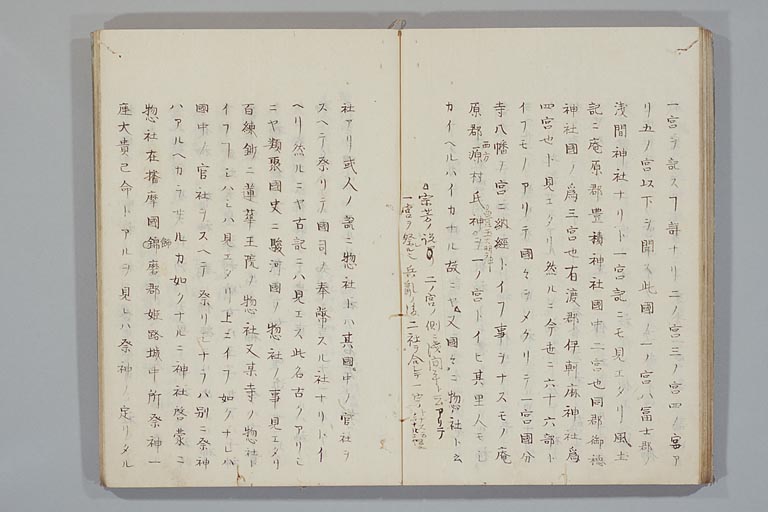 一宮ヲ記スヿ詳ナリ二ノ宮三ノ宮四ノ宮ア
リ五ノ宮以下ヲ聞ス此國ノ一ノ宮ハ富士郡
浅間神社ナリト一宮記ニモ見エタリ風土
記ニ庵原郡豊積神社國中二宮也同郡御穂
神社國ノ為三宮也有渡郡伊軻麻神社為
四宮也ト見エタリ然ルニ今世ニ六十六部ト
イフモノアリテ國々ヲメクリテ一宮國分
寺八幡ノ宮ニ納經トイフ事ヲナスモノ庵
原郡西方原村氏神ヲ一ノ宮トイヒ其里人モ
カイヘルハイカナル故ニヤ又國々ニ惣社ト云
宗芳ノ説 二ノ宮ノ側 アリテ
一宮ヲ祭ル兵亂ノ 二社ヲ合 一宮
社アリ或人ノ説ニ惣社トハ其國中ノ官社ヲ
スヘテ祭リテ國司ノ奉幣スル社ナリトイ
ヘリ然ルニヤ古記ニハ見エス此名古クアリシ
ニヤ類聚國史ニ駿河國ノ惣社ノ事見エタリ
百練鈔ニ蓮華王院ノ惣社又某寺ノ惣社ト
イフヿシハシハ見エタリ上ニイフ如クナレハ
國中ノ官社ヲスヘテ祭リセナラハ別ニ祭神
ハアルヘカラサルカ如クナルニ神社啓蒙ニ
惣社在播磨國飾磨郡姫路城中所祭神一
座大貴己命トアルヲ見レハ祭神ノ定リタル